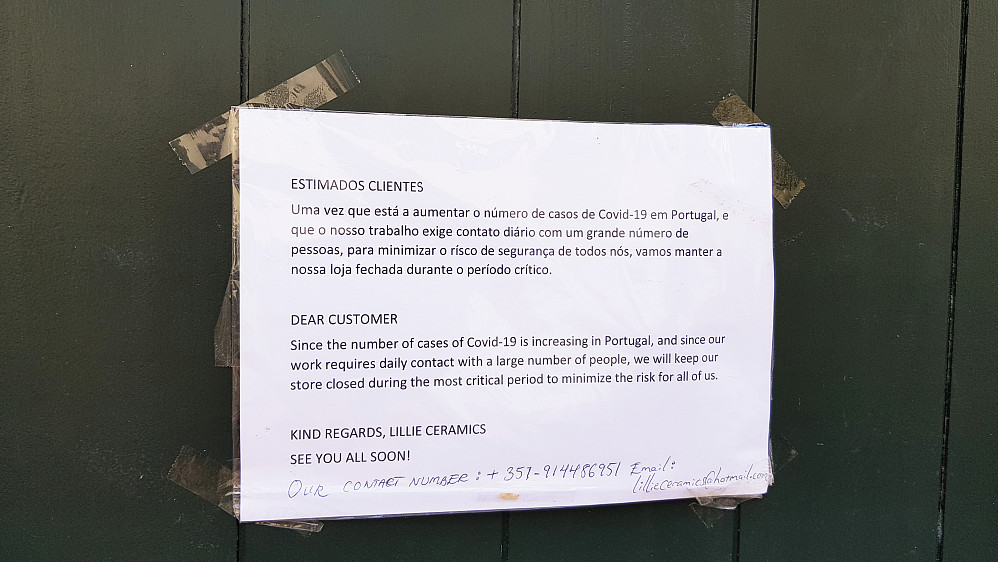 ESTIMADOS CLIENTES
Uma vez que está a aumentar o número de casos de Covid-19 em Portugal, e
que o nosso trabalho exige contato diário com um grande número de
pessoas, para minimizar o rísco de segurança de todos nós, vamos manter a
nossa loja fechada durante o período crítico.
DEAR CUSTOMER
Since the number of cases of Covid-19 is increasing in Portugal, and since our
work requires daily contact with a large number of people, we will keep our
store closed during the most critical period to minimize the risk for all of us.
KIND REGARDS, LILLIE CERAMICS
SEE YOU ALL SOON!
OUR CONTACT NUMBER: + 351-914486951 Email:
lillieceramics@hotmail.com